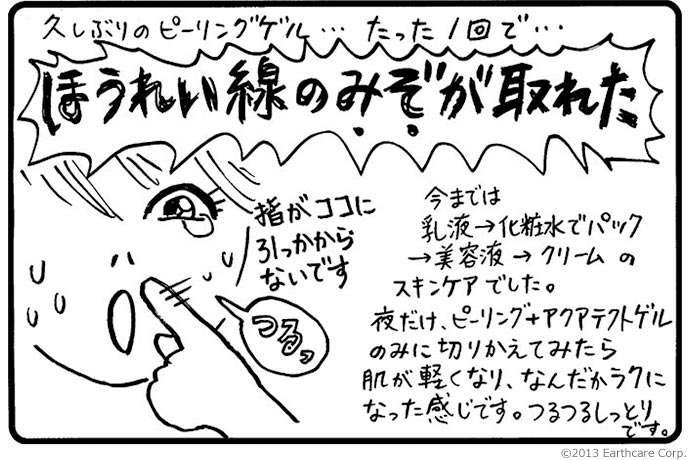 久しぶりのピーリングゲル… たった1回で…
ほうれい線のみぞが取れた
指がココに
引っかから
ないです
つるっ
今までは
乳液→化粧水でパック
→美容液→クリームの
スキンケアでした。
夜だけ、ピーリング+アクアテクトゲル
のみに切りかえてみたら
肌が軽くなり、なんだかラクに
なった感じです。つるつるしっとり
です。
©2013 Earthcare Corp.